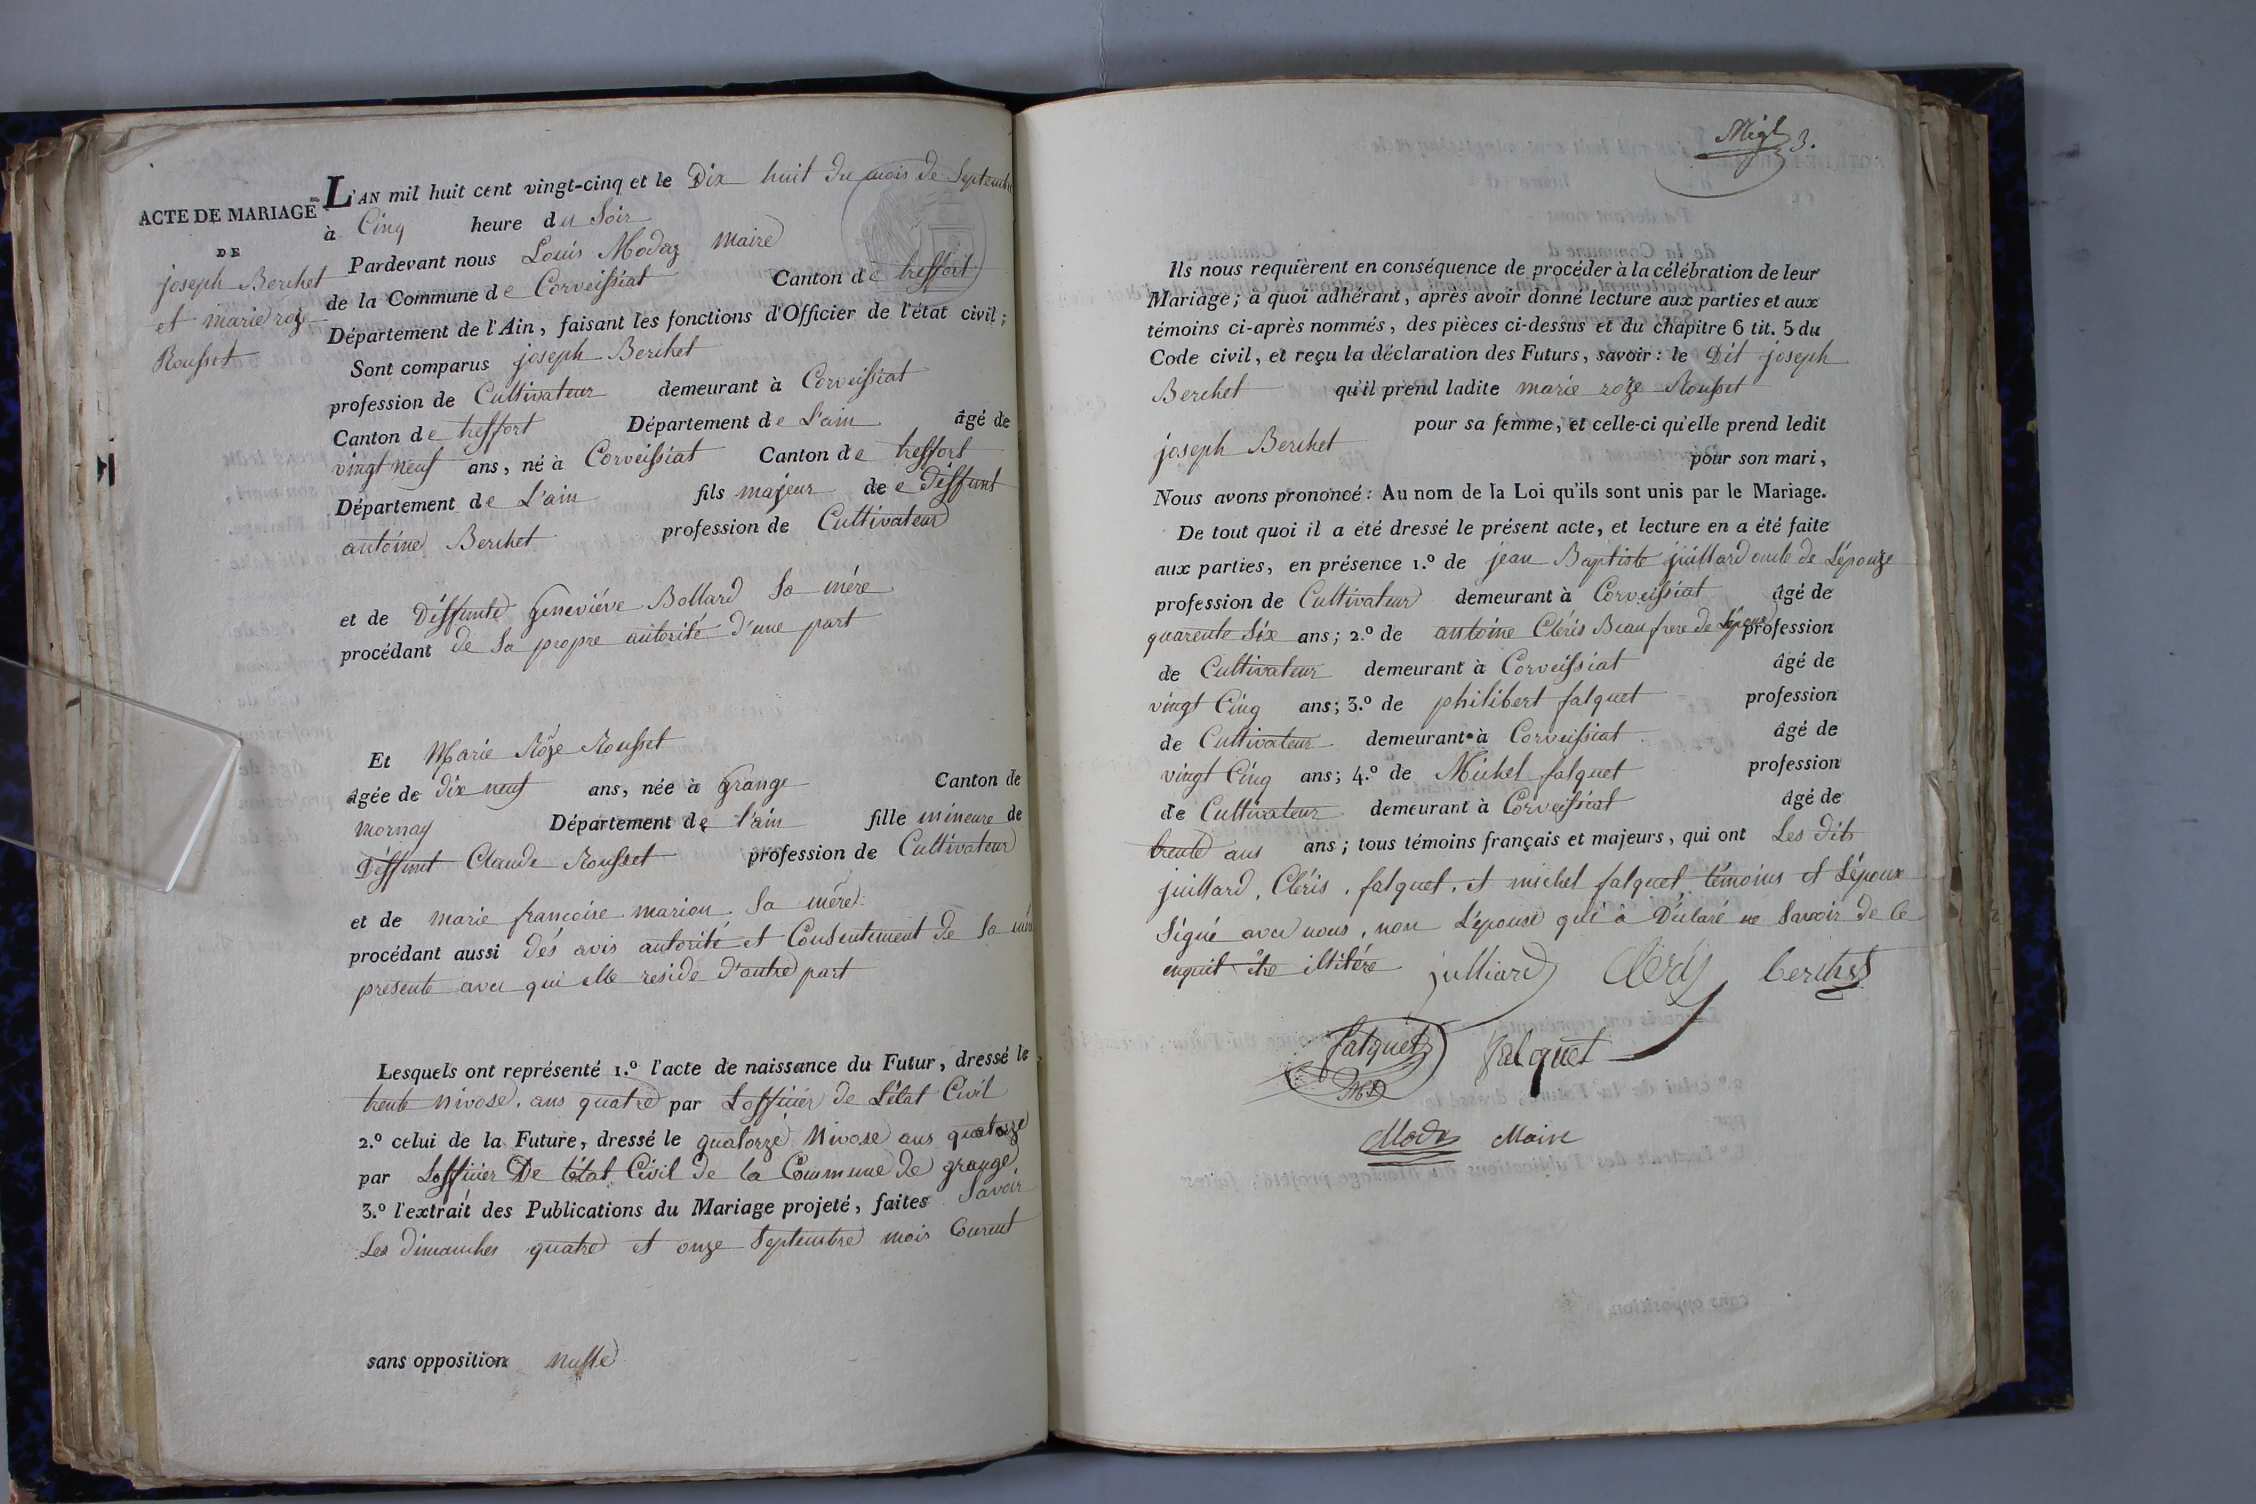 ACTE DE MARIAGE
DE
joseph Berchet
et marie roze
Rousset
L'AN mil huit cent vingt-cinq et le Dix huit du mois de Septembre
à Cinq heure du Soir
Pardevant nous Louis Modaz Maire
de la Commune de Corveissiat Canton de treffort
Département de l'Ain, faisant les fonctions d'Officier de l'état civil;
Sont comparus joseph Berchet
profession de Cultivateur demeurant à Corveissiat
Canton de treffort Département de L'ain âgé de
vingt neuf ans, né à Corveissiat Canton de treffort
Département de L'ain fils majeur de e Déffunt
antoine Berchet profession de Cultivateur
et de Déffunte Geneviéve Bollard Sa mére
procédant de Sa propre autorité d'une part
Et Marie Rôze Rousset
âgée de dix neuf ans, née à Grange Canton de
mornay Département de l'ain fille mineure de
Déffunt Claude Rousset profession de Cultivateur
et de marie francoise marion Sa mére
procédant aussi dés avis autorité et Consentement de Sa mére
présente avec qui elle reside d'autre part
Lesquels ont représenté 1.º l'acte de naissance du Futur, dressé le
trente Nivose, ans quatre par L'officier de L'état Civil
2.º celui de la Future, dressé le quatorze Nivose ans quatorze
par L'officier De L'état Civil de la Commune de grange
3.º l'extrait des Publications du Mariage projeté, faites Savoir
Les dimanches quatre et onze Septembre mois Courent
sans opposition nulle
3.
Ils nous requièrent en conséquence de procéder à la célébration de leur
Mariage; à quoi adhérant, après avoir donné lecture aux parties et aux
témoins ci-après nommés, des pièces ci-dessus et du chapitre 6 tit. 5 du
Code civil, et reçu la déclaration des Futurs, savoir: le Dit joseph
Berchet qu'il prend ladite marie roze Rousset
pour sa femme, et celle-ci qu'elle prend ledit
joseph Berchet pour son mari,
Nous avons prononcé: Au nom de la Loi qu'ils sont unis par le Mariage.
De tout quoi il a été dressé le présent acte, et lecture en a été faite
aux parties, en présence 1.º de jean Baptiste juillard oncle de L'épouze
profession de Cultivateur demeurant à Corveissiat âgé de
quarente Six ans; 2.º de antoine Cléris Beau frere de L'epoux profession
de Cultivateur demeurant à Corveissiat âgé de
vingt Cinq ans; 3.º de philibert falquet profession
de Cultivateur demeurant à Corveissiat âgé de
vingt Cinq ans; 4.º de Michel falquet profession
de Cultivateur demeurant à Corveissiat âgé de
trente ans ans; tous témoins français et majeurs, qui ont Les dits
juillard, Cléris, falquet, et michel falquet témoins et L'époux
Signé avec nous, non L'épouse qui à Déclaré ne Savoir de Ce
enquit être illitéré julliard Cleris berchet
falquet falquet
Modas Maire